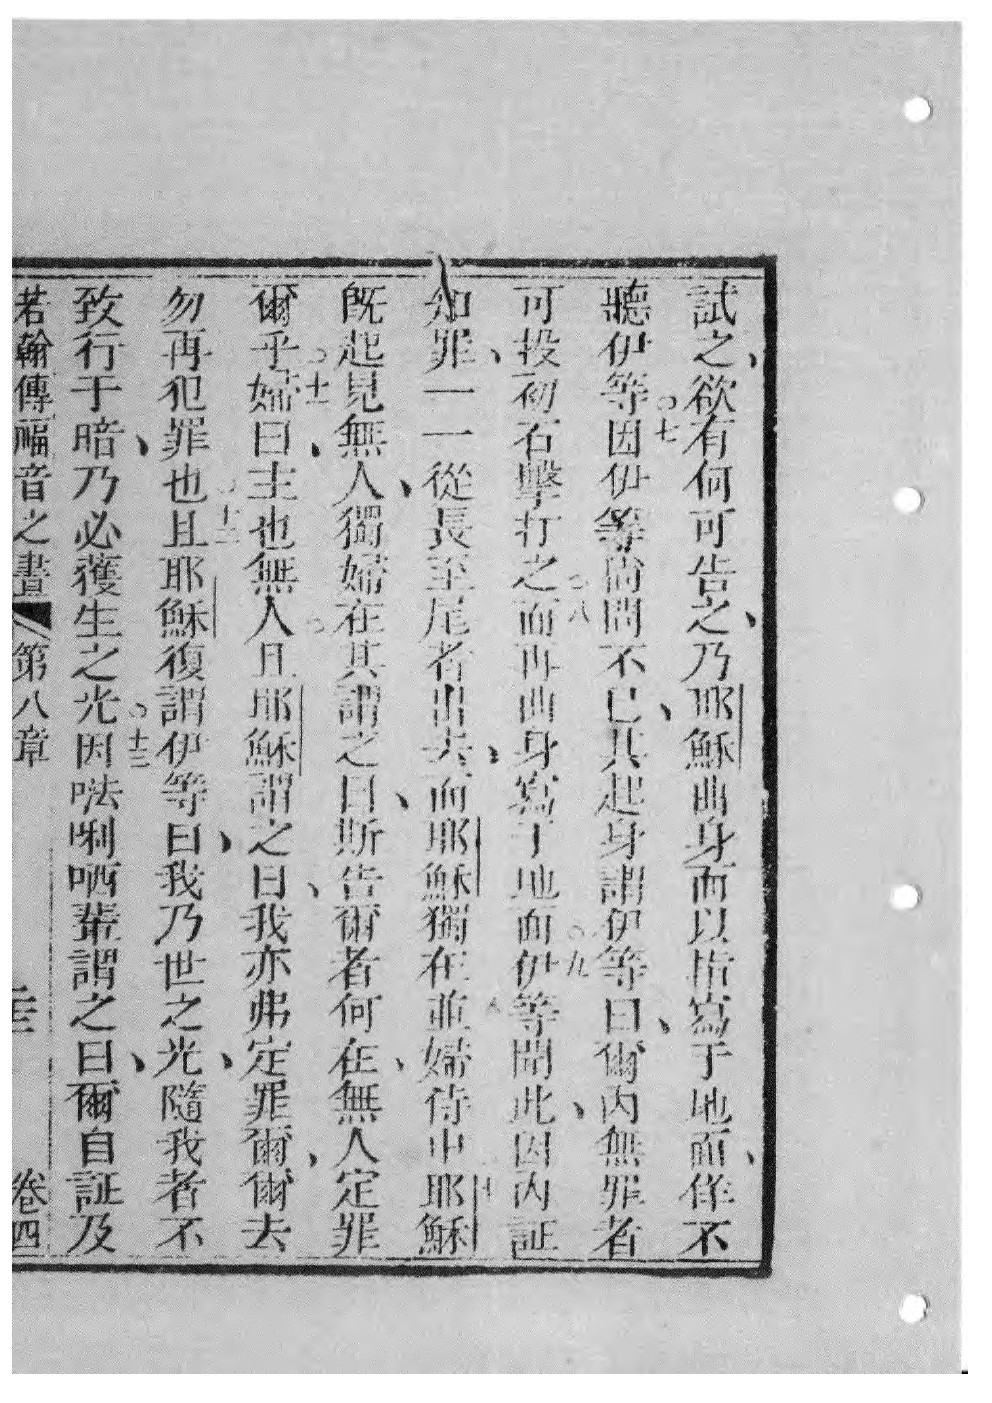 試之、欲有何可告之、乃耶穌曲身而以指寫于地面、佯不
聽伊等○七因伊等尚問不已、其起身謂伊等曰、爾內無罪者
可投初石擊打之○八而再曲身寫于地面○九伊等聞此、因內証
知罪、一一從長至尾者出去、而耶穌獨在並婦侍中○十耶穌
既起見無人、獨婦在其謂之曰、斯告爾者何在、無人定罪
爾乎○十一婦曰、主也無人○且耶穌謂之曰、我亦弗定罪爾、爾去
勿再犯罪也○十二且耶穌復謂伊等曰、我乃世之光、隨我者不
致行于暗、乃必獲生之光○十三因㕸唎哂輩謂之曰、爾自証及
若翰傳福音之書 第八章 卷四